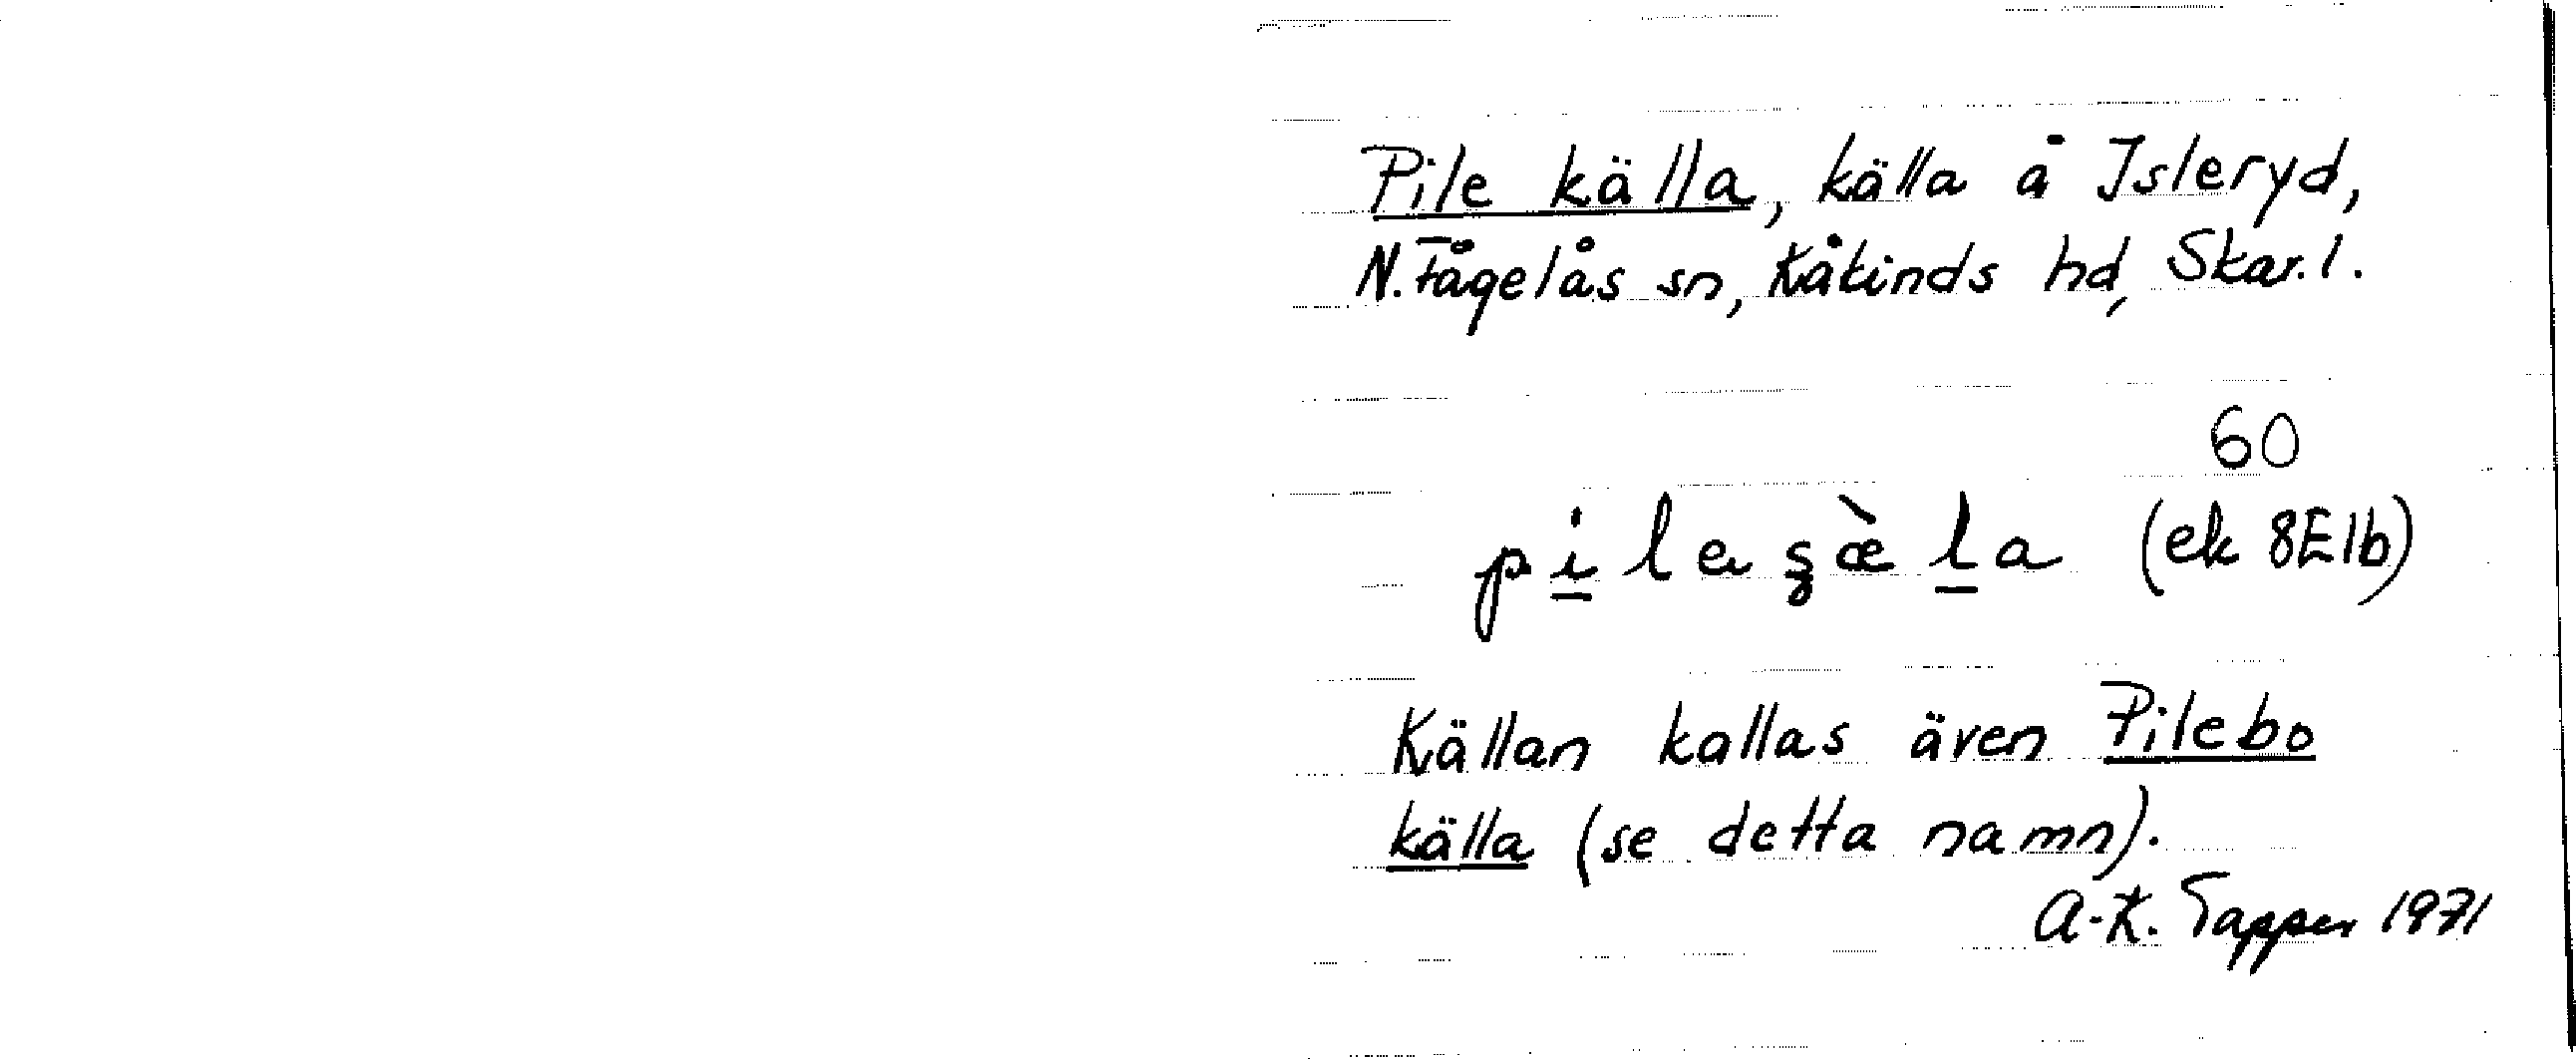 Pile källa, källa å Isleryd,
N. Fågelås sn, Kåkinds hd, Skar. l.
60
(ek 8E1b)
Källan kallas även Pilebo
källa (se detta namn).
A-K. Tapper 1971